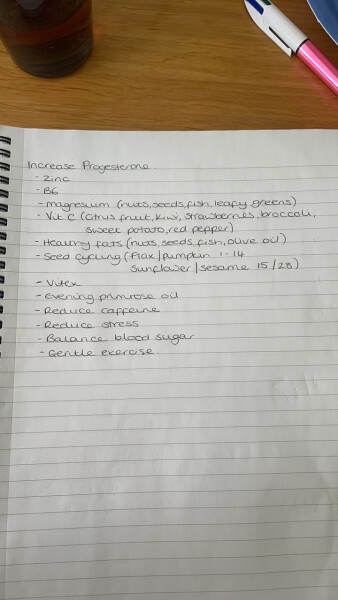 Increase Progesterone
- Zinc
- B6
- Magnesium (nuts, seeds, fish, leafy greens)
- Vit C (Citrus fruit, kiwi, strawberries, broccoli,
sweet potato, red pepper)
- Healthy fats (nuts, seeds, fish, olive oil)
- Seed cycling (flax/pumpkin 1-14
sunflower/sesame 15/28)
- Vitex
- Evening primrose oil
- Reduce caffeine
- Reduce stress
- Balance blood sugar
- Gentle exercise